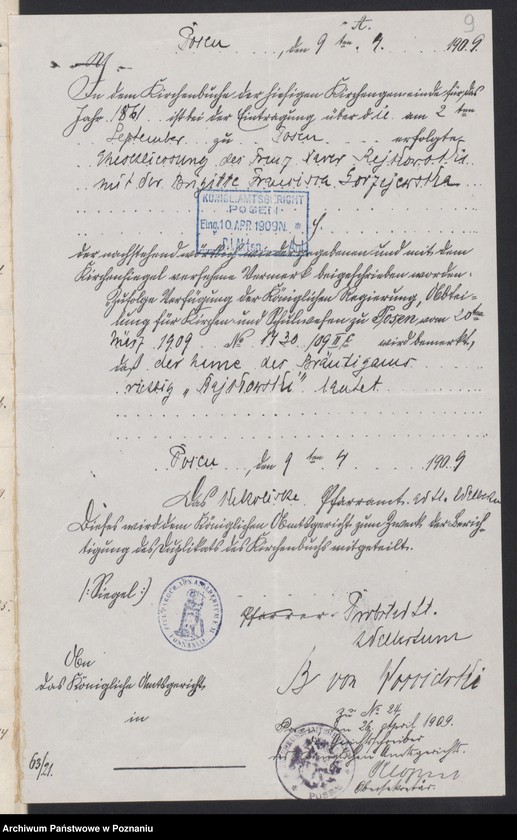 9
A.
Posen, den 9 ten 4. 1909.
In dem Kirchenbuche der hiesigen Kirchengemeinde für das
Jahr 1861 ist bei der Eintragung über die am 2 ten
September zu Posen erfolgte
Eheschliessung des Franz Xaver
mit der Brigitte Francisca Gorzejewska
KÖNIGL. AMTSGERICHT
POSEN
Eing. 10. APR. 1909 N.
der nachstehend wörtlich wiedergegebenen und mit dem
Kirchensiegel versehene Vermerk beigeschrieben worden.
Zufolge Verfügung der Königlichen Regierung, Abtei-
lung für Kirchen- und Schulwesen zu Posen, vom 20 ten
März 1909 No 1730/09 II wird bemerkt,
daß der Name des Bräutigams
richtig „Rajkowski" lautet.
Posen, den 9 ten 4 1909
Das Katholische Pfarramt
Dieses wird dem Königlichen Amtsgericht zum Zweck der Berich-
tigung des Duplikats des Kirchenbuchs mitgeteilt.
(: Siegel :)
Pfarrer
An
das Königliche Amtsgericht
in
zu No 24
26 April 1909.
Gerichtsschreiber
des Königlichen Amtsgerichts.
Obersekretär.
POSEN
63/21.
Archiwum Państwowe w Poznaniu